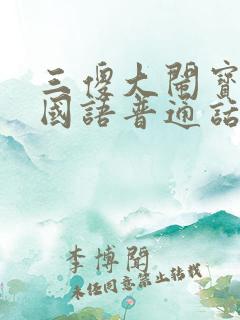 三傻大闹寶
國語普通話
李博聞
未经同意禁止转载